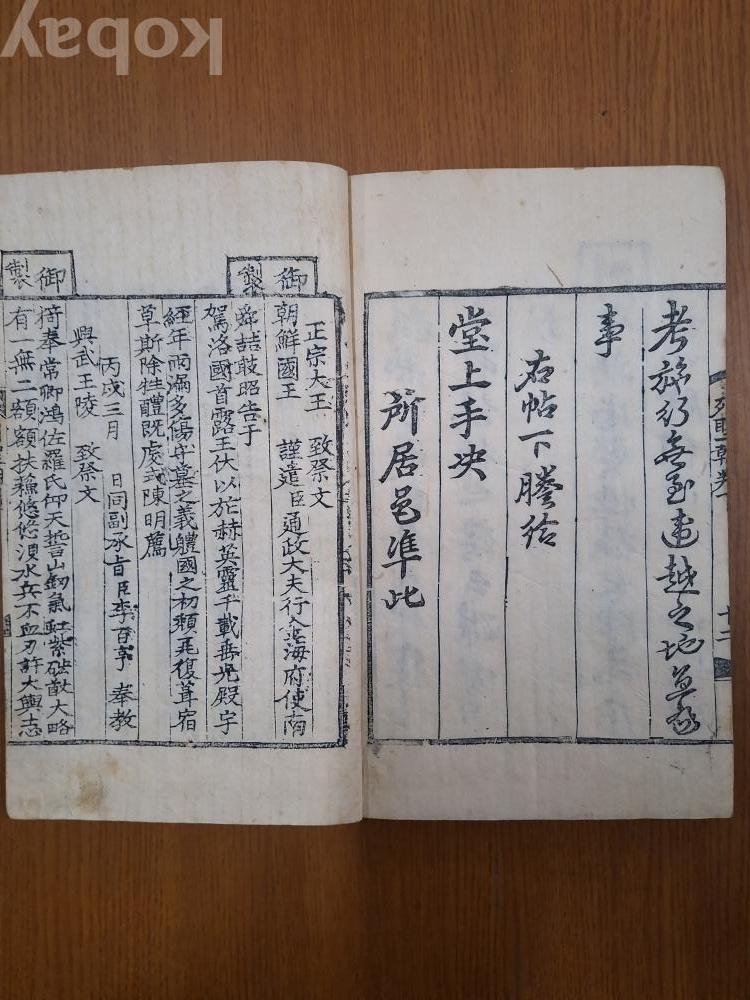 考旅行無至違越之地
事
右帖下謄給
堂上手决
所居邑準此
十二
御製
正宗大王 致祭文
朝鮮國王 謹遣臣通政大夫行金海府使南
舜喆敢昭告于
駕洛國首露王伏以於赫英靈千載垂光殿宇
經年雨滿多傷守墓之義軆國之初頹復葺宿
草斯除牲醴旣虔式陳明薦
丙戌三月 日同副承旨臣李百亨 奉敎
興武王陵 致祭文
御製
猗奉常卿鴻佐羅氏仰天誓山釰氣虹紫大略
有一無二額額扶蘇悠悠浿水兵不血刃許大興志
kobay